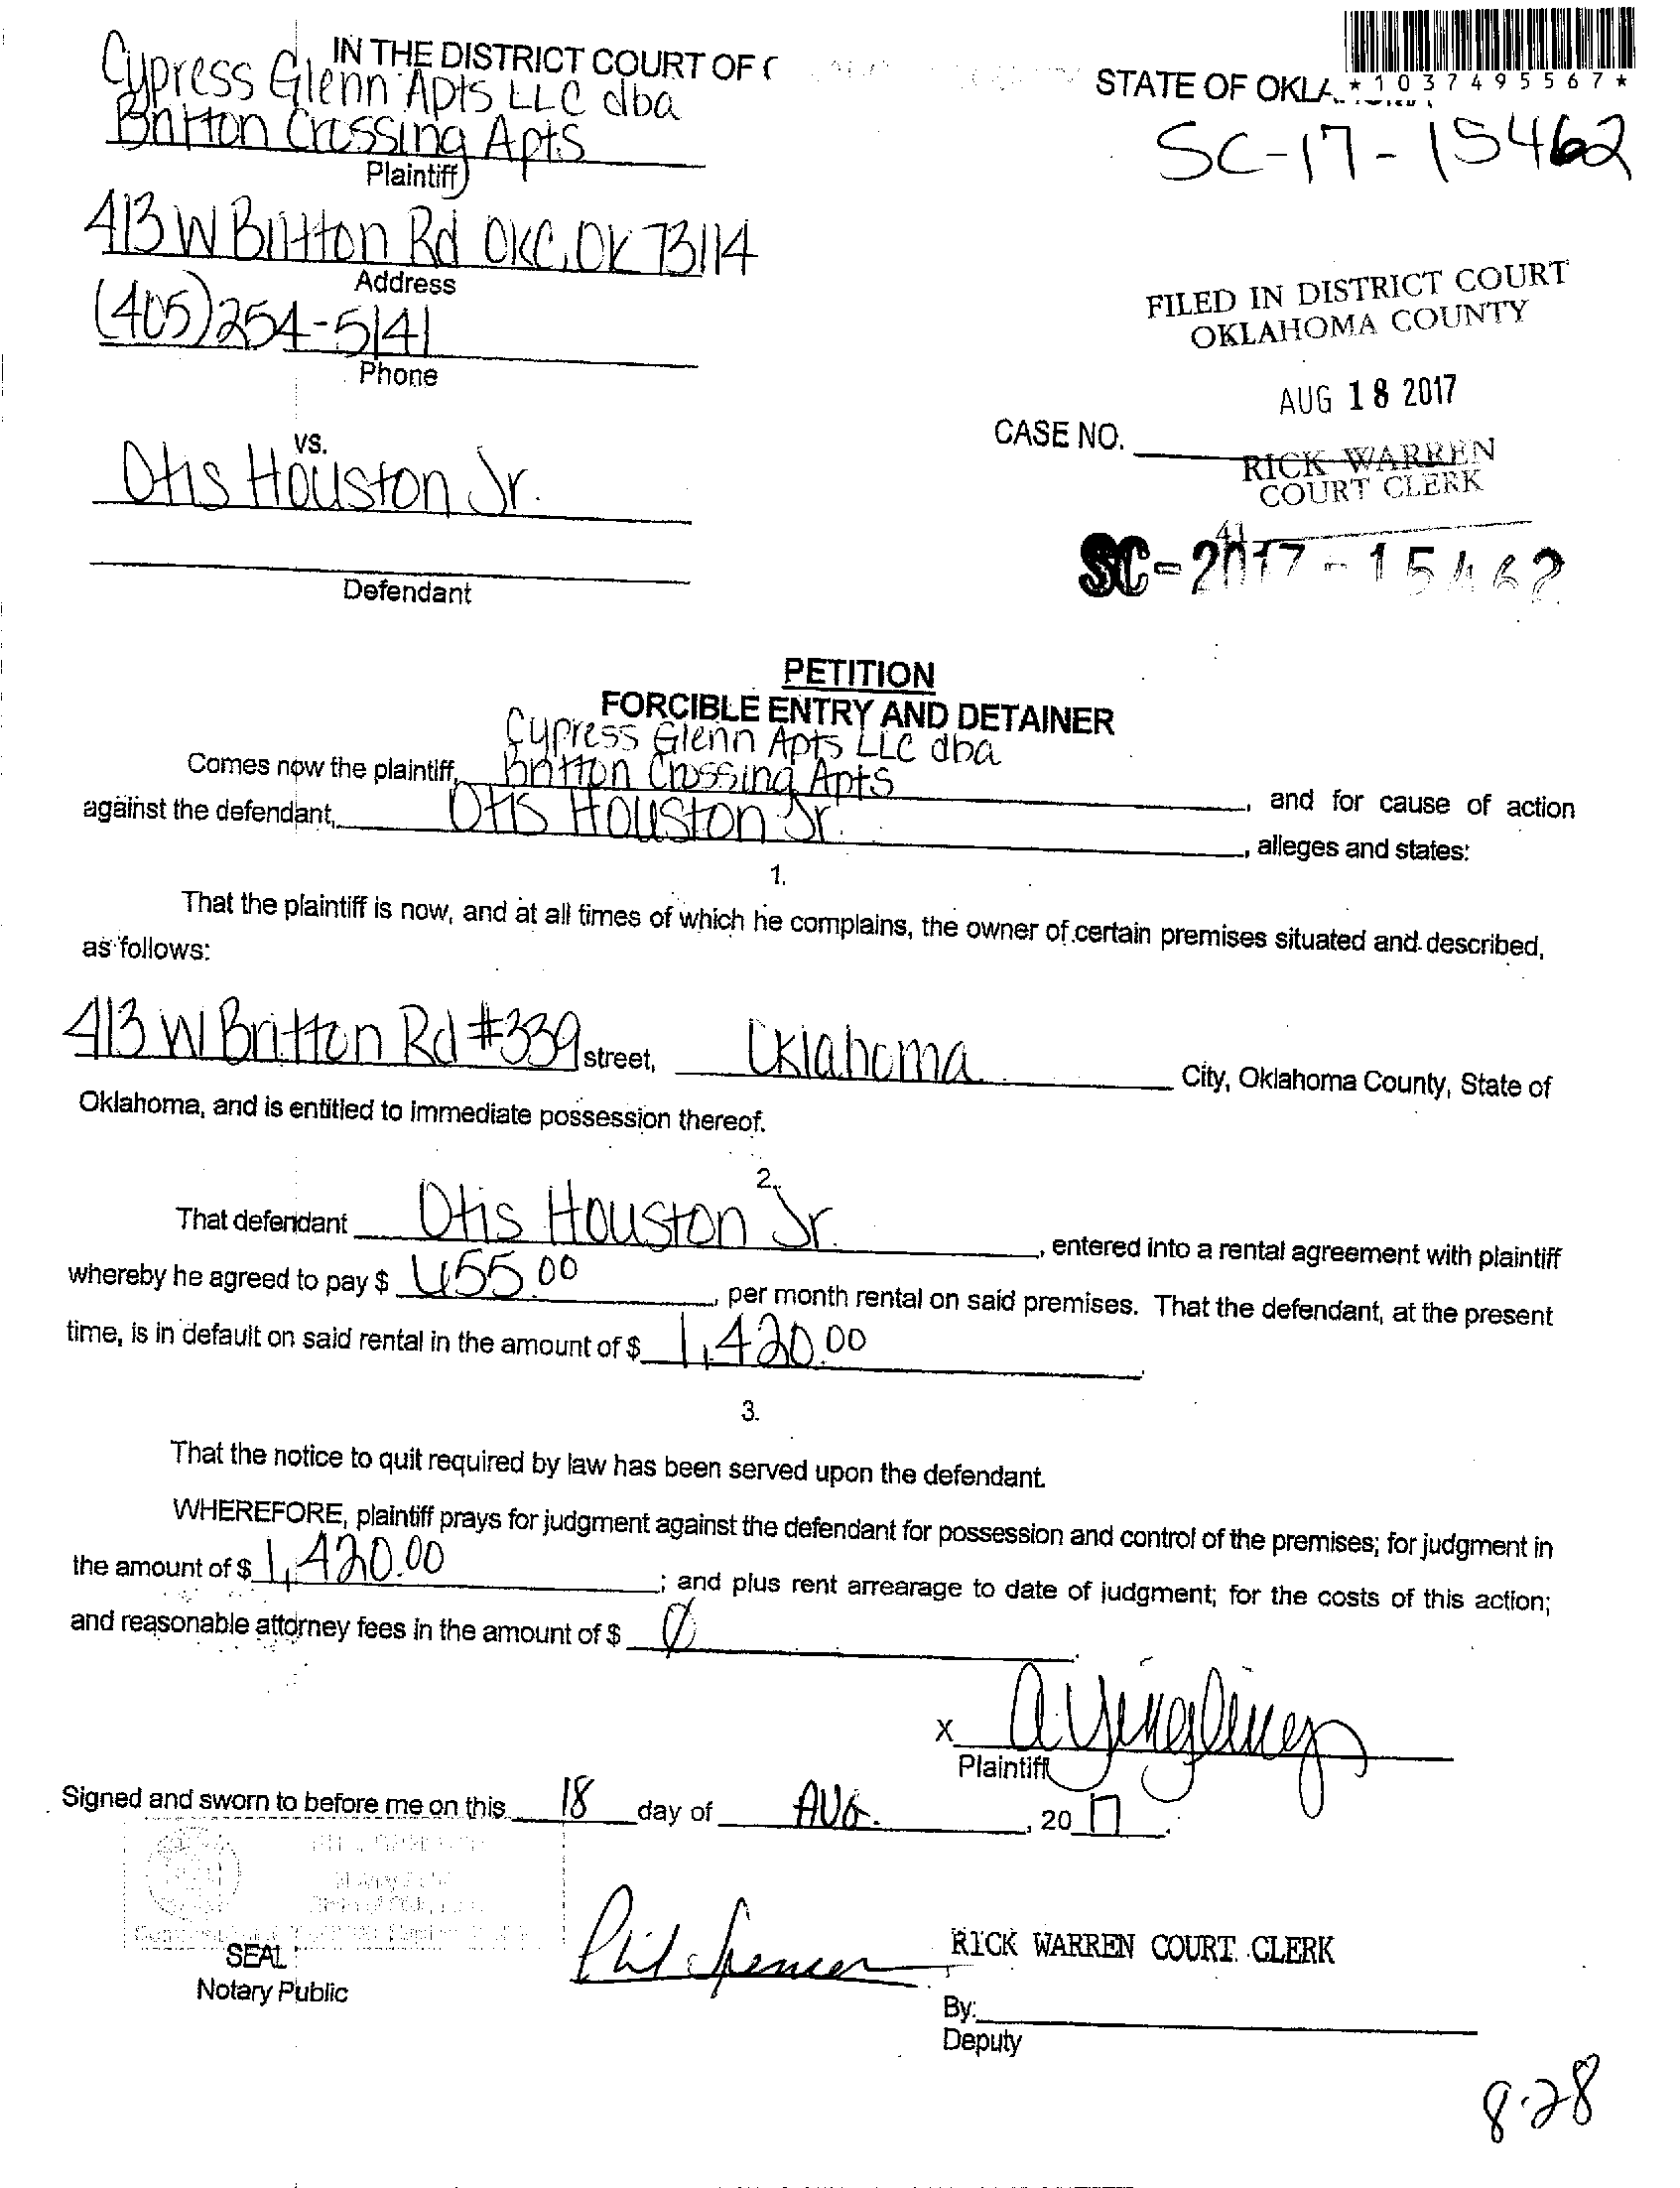 IN THE DISTRICT COURT OF
STATE OF
*1037495567*
Cypress Glenn Apts LLC dba
Britton Crossing Apts
SC-17-15462
Plaintiff
413 W Britton Rd OKC, OK 73114
Address
(405)254-5141
Phone
FILED IN DISTRICT COURT
OKLAHOMA COUNTY
AUG 18 2017
CASE NO.
RICK WARREN
COURT CLERK
41
vs.
Otis Houston Jr.
SC-2017-15462
Defendant
PETITION
FORCIBLE ENTRY AND DETAINER
Cypress Glenn Apts LLC dba
Comes now the plaintiff, Britton Crossing Apts, and for cause of action
against the defendant, Otis Houston Jr., alleges and states:
1.
That the plaintiff is now, and at all times of which he complains, the owner of certain premises situated and described,
as follows:
413 W Britton Rd #339 street, Oklahoma City, Oklahoma County, State of
Oklahoma, and is entitled to immediate possession thereof.
2.
That defendant Otis Houston Jr., entered into a rental agreement with plaintiff
whereby he agreed to pay $ 655.00, per month rental on said premises. That the defendant, at the present
time, is in default on said rental in the amount of $ 1,420.00.
3.
That the notice to quit required by law has been served upon the defendant.
WHEREFORE, plaintiff prays for judgment against the defendant for possession and control of the premises; for judgment in
the amount of $ 1,420.00; and plus rent arrearage to date of judgment; for the costs of this action;
and reasonable attorney fees in the amount of $ 0.
X A Yingling
Plaintiff
Signed and sworn to before me on this 18 day of AUG., 20 17.
Phil Spencer
RICK WARREN COURT CLERK
SEAL
Notary Public
By:
Deputy
8-28